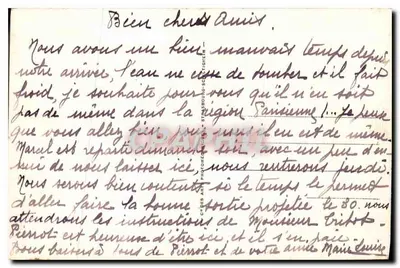 Bien chers Amis.
Nous avons un bien mauvais temps depuis
notre arrivée, l'eau ne cesse de tomber et il fait
froid, je souhaite pour vous qu'il n'en soit
pas de même dans la région Parisienne !... Je pense
que vous allez tous il en est de même
Marcel est reparti dimanche soir avec un peu d'en
nui de nous laisser ici, nous rentrerons jeudi
Nous serons bien contents, si le temps le permet
d'aller faire la bonne sortie projetée le 30. nous
attendrons les instructions de Monsieur
Pierrot est heureux d'être ici, et il s'en paie.
Bons baisers à tous de Pierrot et de votre amie Marie Louise